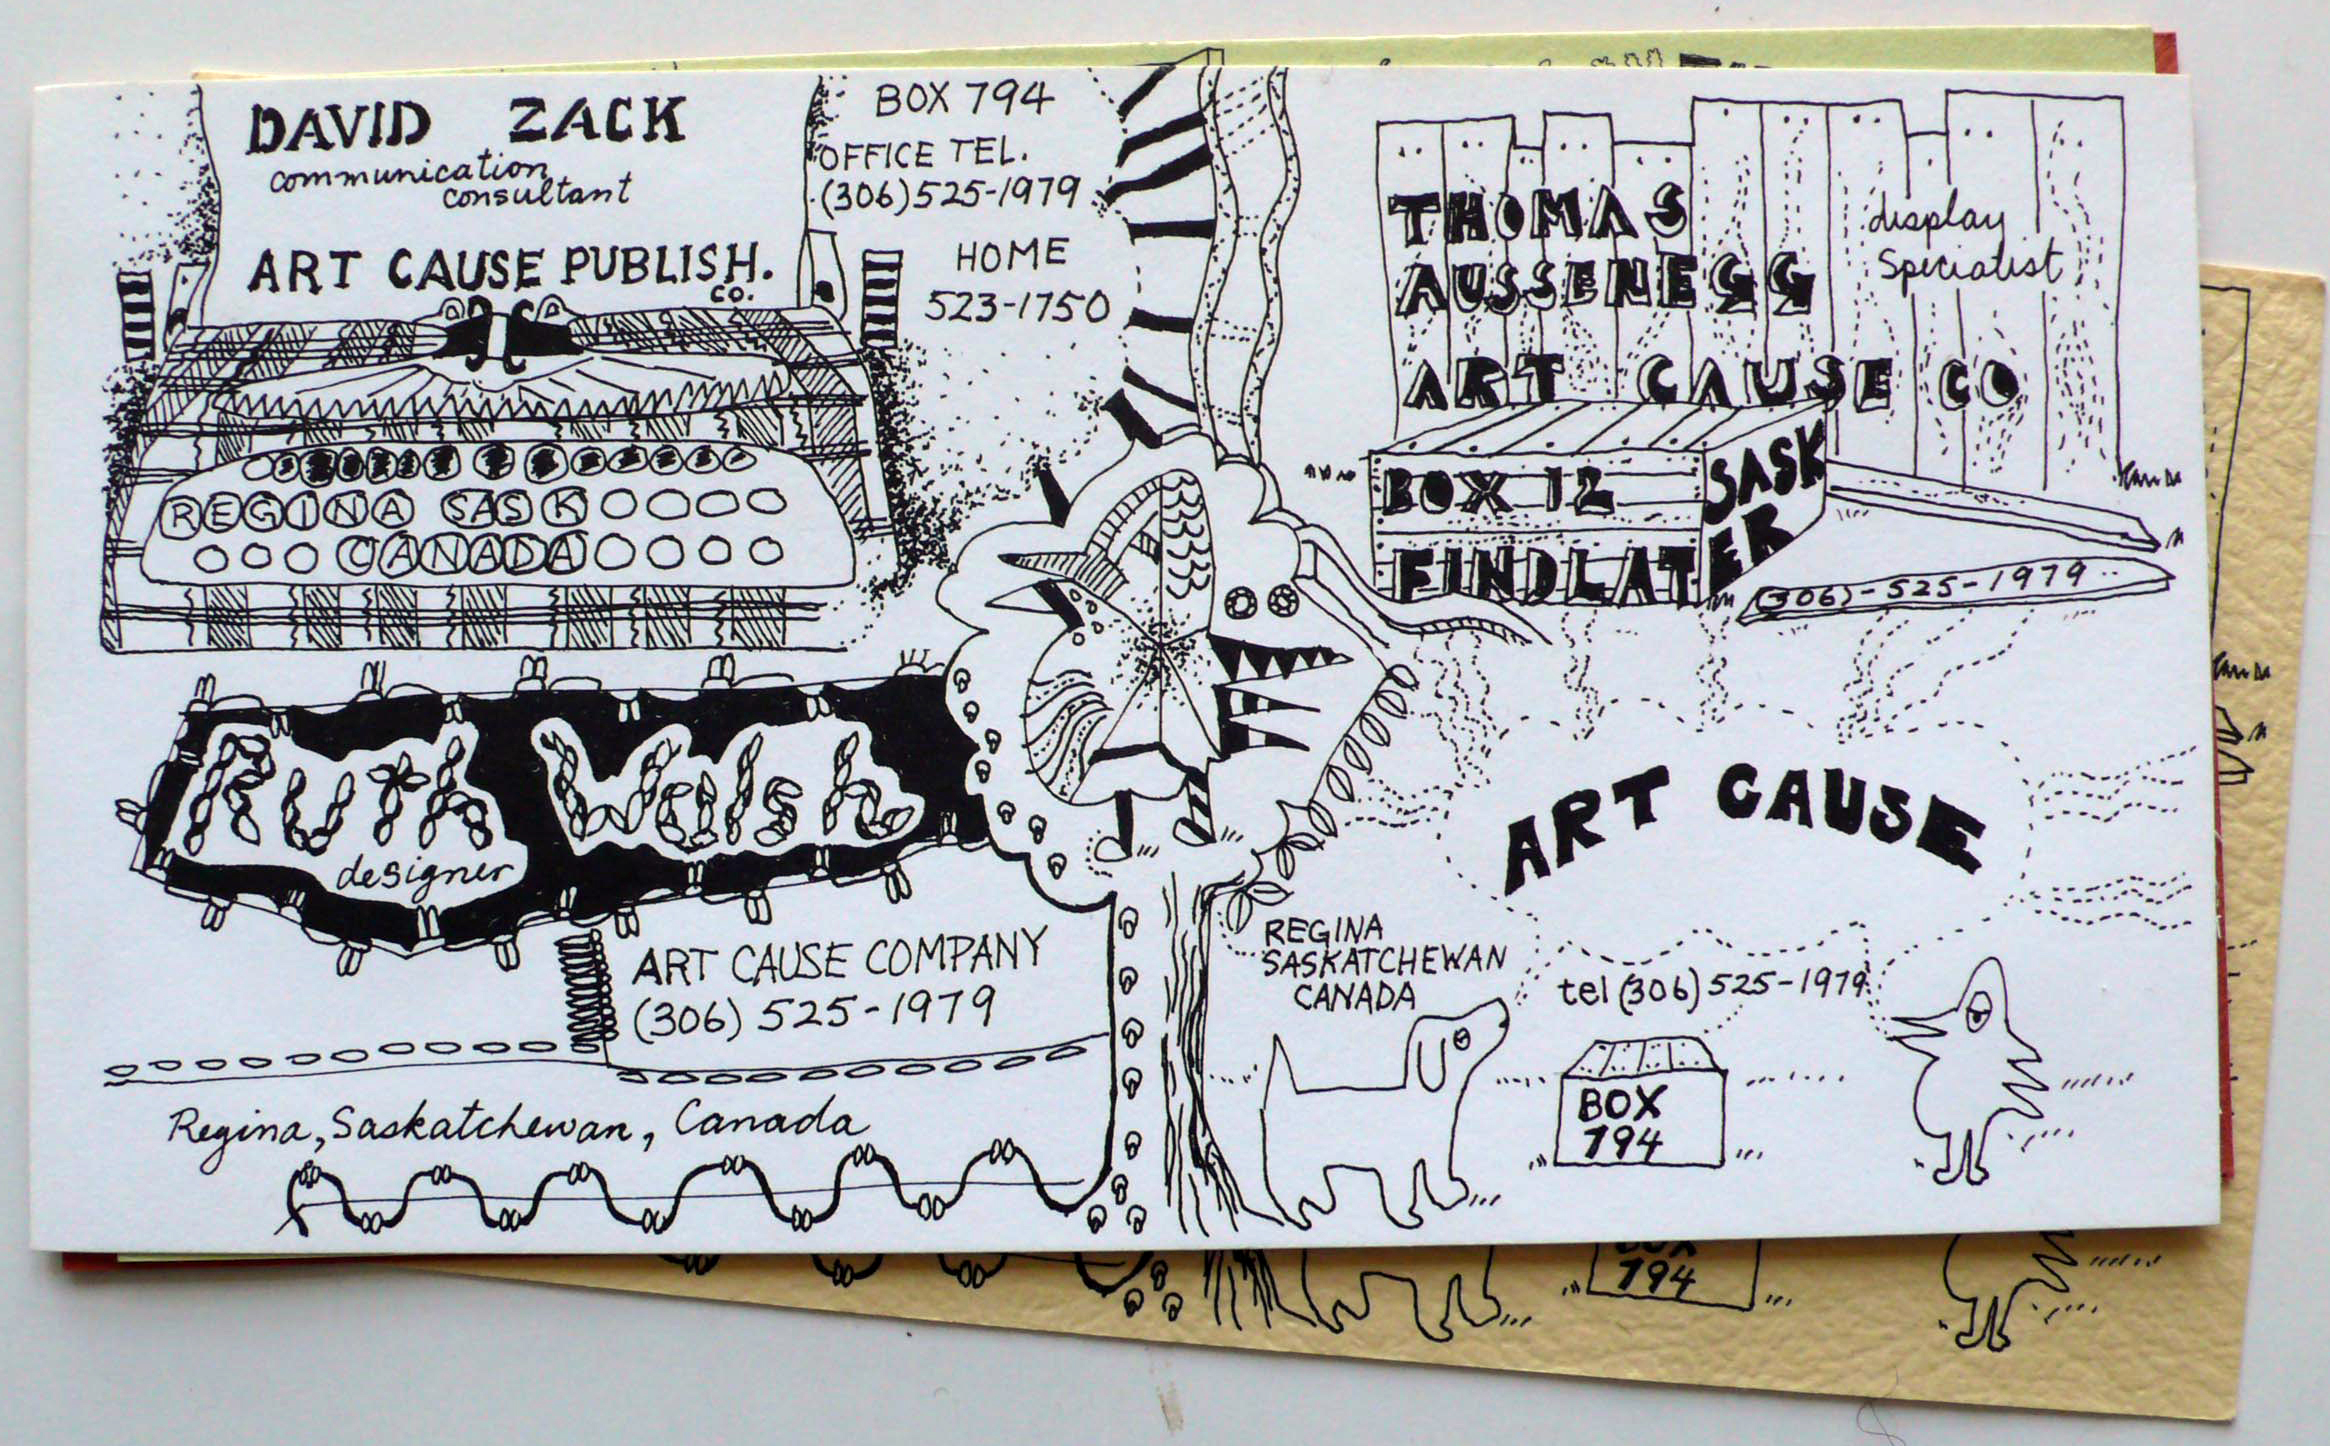 DAVID ZACK
communication
consultant
ART CAUSE PUBLISH.
CO.
REGINA SASK
CANADA
BOX 794
OFFICE TEL.
(306) 525-1979
HOME
523-1750
THOMAS
AUSSENEGG
display
Specialist
ART CAUSE CO
BOX 12
FINDLATER
SASK
(306)-525-1979
Ruth Walsh
designer
ART CAUSE COMPANY
(306) 525-1979
Regina, Saskatchewan, Canada
ART CAUSE
REGINA
SASKATCHEWAN
CANADA
tel (306) 525-1979
BOX
794
BOX
794